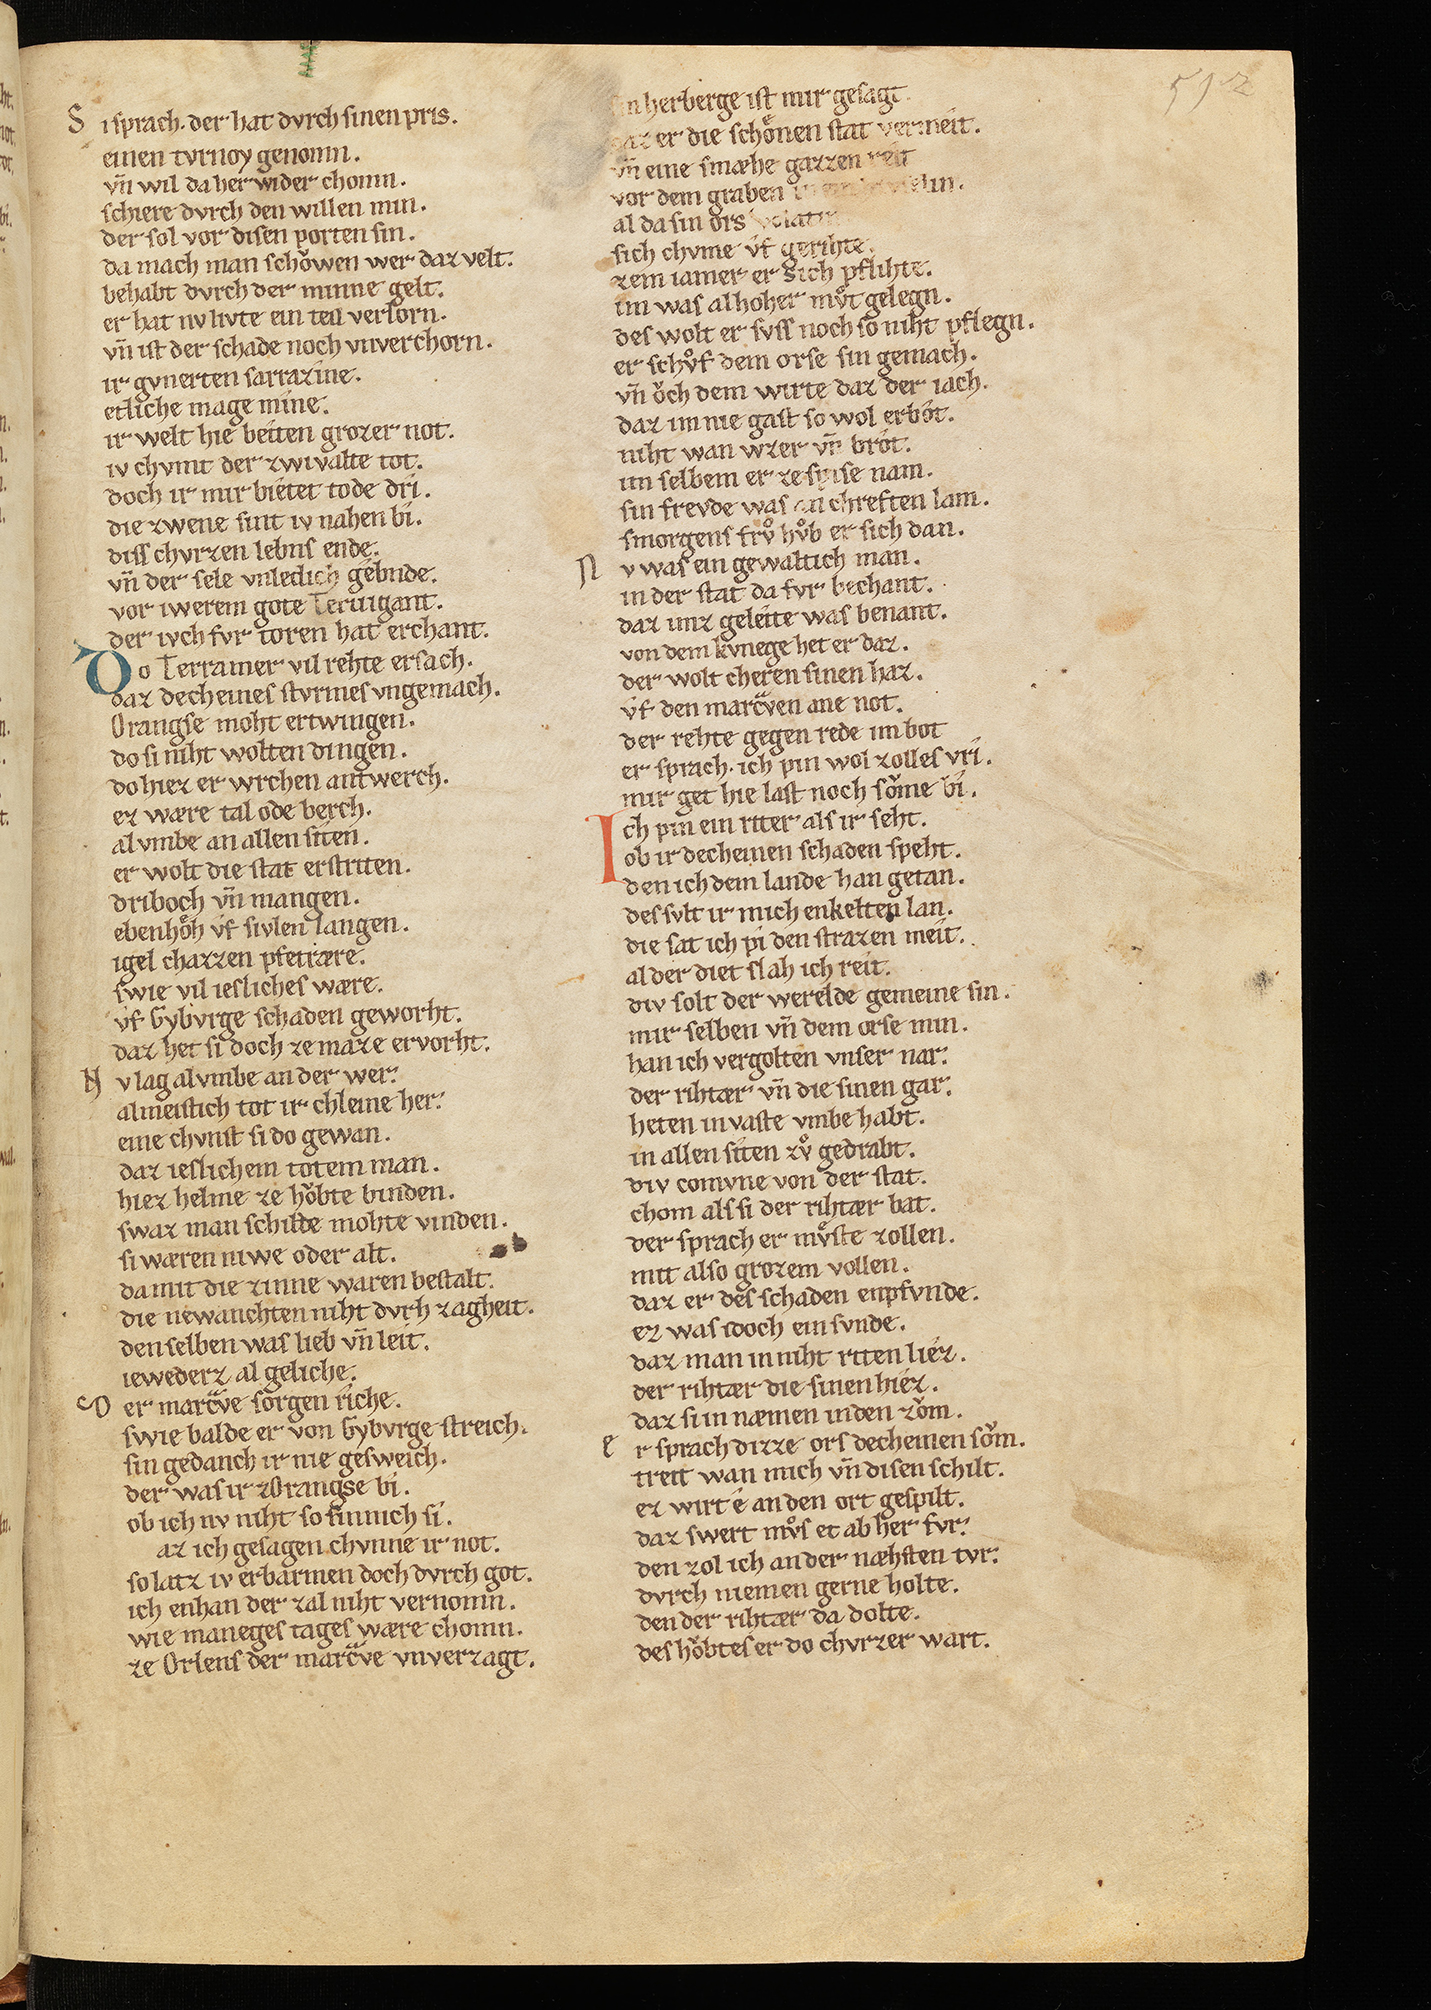 592
Si sprach. der hat dvrch sinen pris.
einen tvrnoy genomn.
vn̄ wil da her wider chomn.
schiere dvrch den willen min.
der sol vor disen porten sin.
da mach man schoͮwen wer daz velt.
behabt dvrch der minne gelt.
er hat nv livte ein teil verlorn.
vn̄ ist der schade noch vnverchorn.
ir gvnerten sarrazine.
etliche mage mine.
ir welt hie beiten grozer not.
iv chvmt der zwivalte tot.
doch ir mir bietet tode dri.
die zwene sint iv nahen bi.
diss chvrzen lebns ende.
vn̄ der sele vnledich gebnde.
vor iwerem gote Tervigant.
der ivch fvr toren hat erchant.
Do Terramer vil rehte ersach.
daz decheines stvrmes vngemach.
Orangse moht ertwingen.
do si niht wolten dingen.
do hiez er wrchen antwerch.
ez wære tal ode berch.
al vmbe an allen siten.
er wolt die stat erstriten.
driboch vn̄ mangen.
ebenhoͤh vf sivlen langen.
igel chazzen pfetrære.
swie vil iesliches wære.
vf Gybvrge schaden geworht.
daz het si doch ze maze ervorht.
Nv lag al vmbe an der wer.
almeistich tot ir chleine her.
eine chvnst si do gewan.
daz ieslichem totem man.
hiez helme ze hoͮbte binden.
swaz man schilde mohte vinden.
si wæren niwe oder alt.
da mit die zinne waren bestalt.
die newanchten niht dvrh zagheit.
den selben was lieb vn̄ leit.
iewederz al geliche.
Der marcͣve sorgen riche.
swie balde er von Gybvrge streich.
sin gedanch ir nie gesweich.
der was ir zOrangse bi.
ob ich nv niht so sinnich si.
az ich gesagen chvnne ir not.
so latz iv erbarmen doch dvrch got.
ich enhan der zal niht vernomn.
wie maneges tages wære chomn.
ze Orlens der marcͣve vnverzagt.
sin herberge ist mir gesagt.
daz er die schoͤnen stat vermeit.
vn̄ eine smæhe gazzen reit
vor dem graben
al da sin ors
sich chvme vf gerihte.
zem iamer er sich pflihte.
im was al hoher mvͦt gelegn.
des wolt er svss noch so niht pflegn.
er schvͦf dem orse sin gemach.
vn̄ oͮch dem wirte daz der iach.
daz im nie gast so wol erbot.
niht wan wzer vn̄ brot.
im selbem er ze spise nam.
sin frevde was an chreften lam.
smorgens frvͦ hvͦb er sich dan.
Nv was ein gewaltich man.
in der stat da fvr bechant.
daz imz geleite was benant.
von dem kvnege het er daz.
der wolt cheren sinen haz.
vf den marcͣven ane not.
der rehte gegen rede im bot
er sprach. ich pin wol zolles vri.
mir get hie last noch soͮme bi.
Ich pin ein riter als ir seht.
ob ir decheinen schaden speht.
den ich dem lande han getan.
des svlt ir mich enkelten lan.
die sat ich pi den strazen meit.
al der diet slah ich reit.
div solt der werelde gemeine sin.
mir selben vn̄ dem orse min.
han ich vergolten vnser nar.
der rihtær vn̄ die sinen gar.
heten in vaste vmbe habt.
in allen siten zvͦ gedrabt.
div comvne von der stat.
chom als si der rihtær bat.
der sprach er mvͤste zollen.
mit also grozem vollen.
daz er des schaden enpfvnde.
ez was idoch ein svnde.
daz man in niht riten liez.
der rihtær die sinen hiez.
daz si in næmen in den zoͮm.
er sprach dizze ors decheinen soͮm.
treit wan mich vn̄ disen schilt.
ez wirt e an den ort gespilt.
daz swert mvͦs et ab her fvr.
den zol ich an der næhsten tvr.
dvrch niemen gerne holte.
den der rihtær da dolte.
des hoͮbtes er do chvrzer wart.